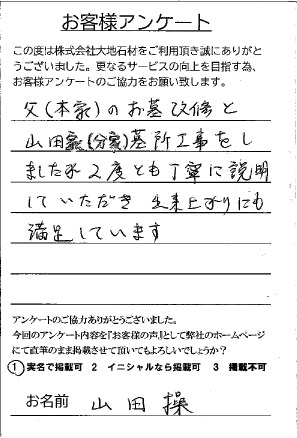 お客様アンケート
この度は株式会社大地石材をご利用頂き誠にありがと
うございました。更なるサービスの向上を目指す為、
お客様アンケートのご協力をお願い致します。
父(本家)のお墓改修と
山田家(分家)墓所工事をし
ましたが2度とも丁寧に説明
していただき 出来上がりにも
満足しています
アンケートのご協力ありがとうございました。
今回のアンケート内容を『お客様の声』として弊社のホームページ
にて直筆のまま掲載させて頂いてもよろしいでしょうか？
① 実名で掲載可 2 イニシャルなら掲載可 3 掲載不可
お名前 山田 操